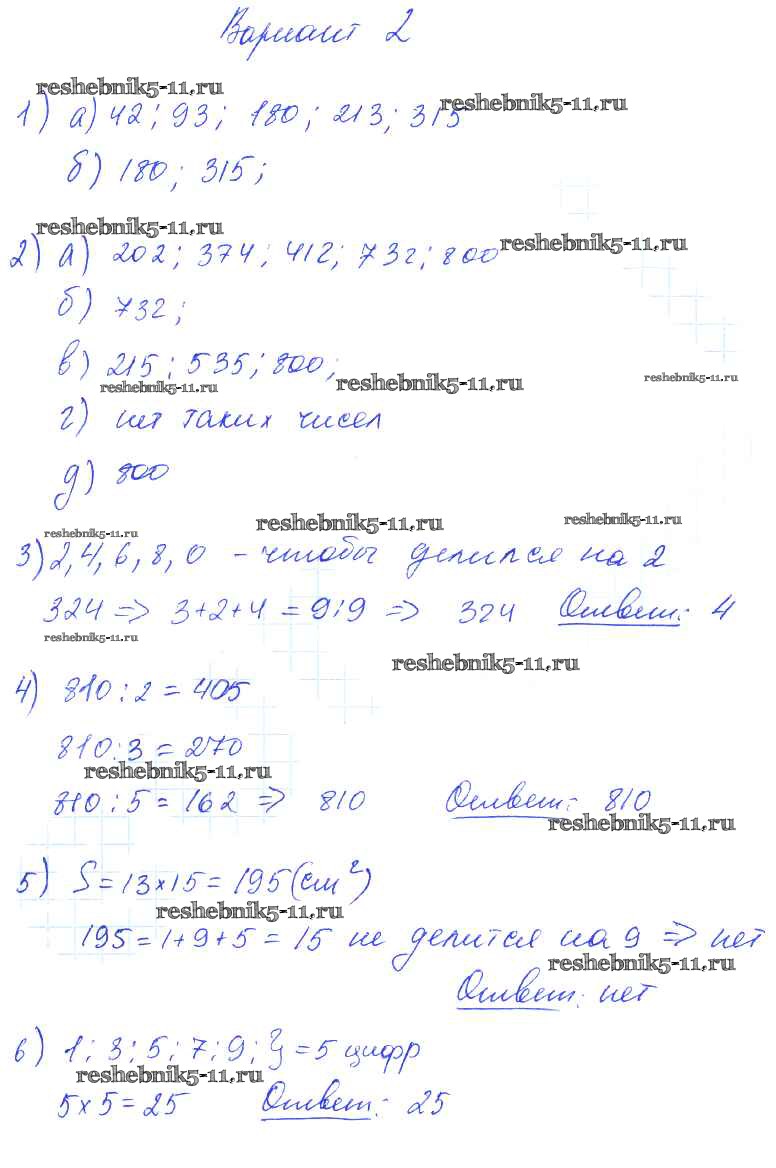 Вариант 2
reshebnik5-11.ru
reshebnik5-11.ru
1) а) 42; 93; 180; 213; 315
б) 180; 315;
reshebnik5-11.ru
reshebnik5-11.ru
2) а) 202; 374; 412; 732; 800
б) 732;
в) 215; 535; 800;
reshebnik5-11.ru reshebnik5-11.ru reshebnik5-11.ru
г) нет таких чисел
д) 800
reshebnik5-11.ru reshebnik5-11.ru reshebnik5-11.ru
3) 2, 4, 6, 8, 0 - чтобы делился на 2
324 => 3+2+4 = 9; 9 => 324 Ответ: 4
reshebnik5-11.ru
reshebnik5-11.ru
4) 810 : 2 = 405
810 : 3 = 270
reshebnik5-11.ru
810 : 5 = 162 => 810 Ответ: 810
reshebnik5-11.ru
5) S = 13 × 15 = 195 (см²)
reshebnik5-11.ru
195 = 1+9+5 = 15 не делится на 9 => нет
reshebnik5-11.ru
Ответ: нет
6) 1; 3; 5; 7; 9; } = 5 цифр
reshebnik5-11.ru
5 × 5 = 25 Ответ: 25